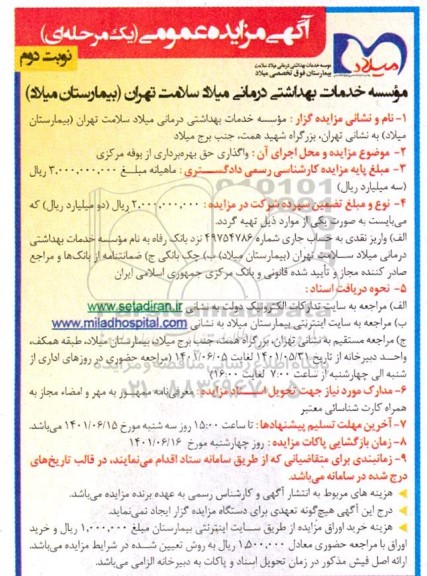 آگهی مزایده عمومی (یک مرحله‌ای)
نوبت دوم
میلاد
موسسه خدمات بهداشتی درمانی میلاد سلامت
بیمارستان فوق تخصصی میلاد
مؤسسه خدمات بهداشتی درمانی میلاد سلامت تهران (بیمارستان میلاد)
۱- نام و نشانی مزایده گزار : مؤسسه خدمات بهداشتی درمانی میلاد سلامت تهران (بیمارستان
میلاد) به نشانی تهران، بزرگراه شهید همت، جنب برج میلاد
۲- موضوع مزایده و محل اجرای آن : واگذاری حق بهره‌برداری از بوفه مرکزی
۳- مبلغ پایه مزایده کارشناسی رسمی دادگستری : ماهیانه مبلغ ۳,۰۰۰,۰۰۰,۰۰۰ ریال
(سه میلیارد ریال)
۴- نوع و مبلغ تضمین سپرده شرکت در مزایده : ۲,۰۰۰,۰۰۰,۰۰۰ ریال (دو میلیارد ریال) که
می‌بایست به صورت یکی از موارد ذیل تهیه گردد.
الف) واریز نقدی به حساب جاری شماره ۴۹۷۵۴۷۸۶ نزد بانک رفاه به نام مؤسسه خدمات بهداشتی
درمانی میلاد سلامت تهران (بیمارستان میلاد) ب) چک بانکی ج) ضمانتنامه از بانک‌ها و مراجع
صادر کننده مجاز و تأیید شده قانونی و بانک مرکزی جمهوری اسلامی ایران
۵- نحوه دریافت اسناد :
الف) مراجعه به سایت تدارکات الکترونیک دولت به نشانی www.setadiran.ir
ب) مراجعه به سایت اینترنتی بیمارستان میلاد به نشانی www.miladhospital.com
ج) مراجعه مستقیم به نشانی تهران، بزرگراه همت، جنب برج میلاد، بیمارستان میلاد، طبقه همکف،
واحد دبیرخانه از تاریخ ۱۴۰۱/۰۵/۳۱ لغایت ۱۴۰۱/۰۶/۰۵ (مراجعه حضوری در روزهای اداری از
شنبه الی چهارشنبه از ساعت ۷:۰۰ لغایت ۱۶:۰۰)
۶- مدارک مورد نیاز جهت تحویل اسناد مزایده : معرفی‌نامه ممهور به مهر و امضاء مجاز به
همراه کارت شناسائی معتبر
۷- آخرین مهلت تسلیم پیشنهادها : تا ساعت ۱۵:۰۰ روز سه شنبه مورخ ۱۴۰۱/۰۶/۱۵ می‌باشد.
۸- زمان بازگشایی پاکات مزایده : روز چهارشنبه مورخ ۱۴۰۱/۰۶/۱۶
۹- زمانبندی برای متقاضیانی که از طریق سامانه ستاد اقدام می‌نمایند، در قالب تاریخ‌های
درج شده در سامانه می‌باشد.
هزینه های مربوط به انتشار آگهی و کارشناس رسمی به عهده برنده مزایده می‌باشد.
درج این آگهی هیچ‌گونه تعهدی برای دستگاه مزایده گزار ایجاد نمی‌نماید.
هزینه خرید اوراق مزایده از طریق سایت اینترنتی بیمارستان مبلغ ۱,۰۰۰,۰۰۰ ریال و خرید
اوراق با مراجعه حضوری معادل ۱,۵۰۰,۰۰۰ ریال به روش تعیین شده در شرایط مزایده می‌باشد.
ارائه اصل فیش مذکور در زمان تحویل اسناد و پاکات به دبیرخانه الزامی می‌باشد.